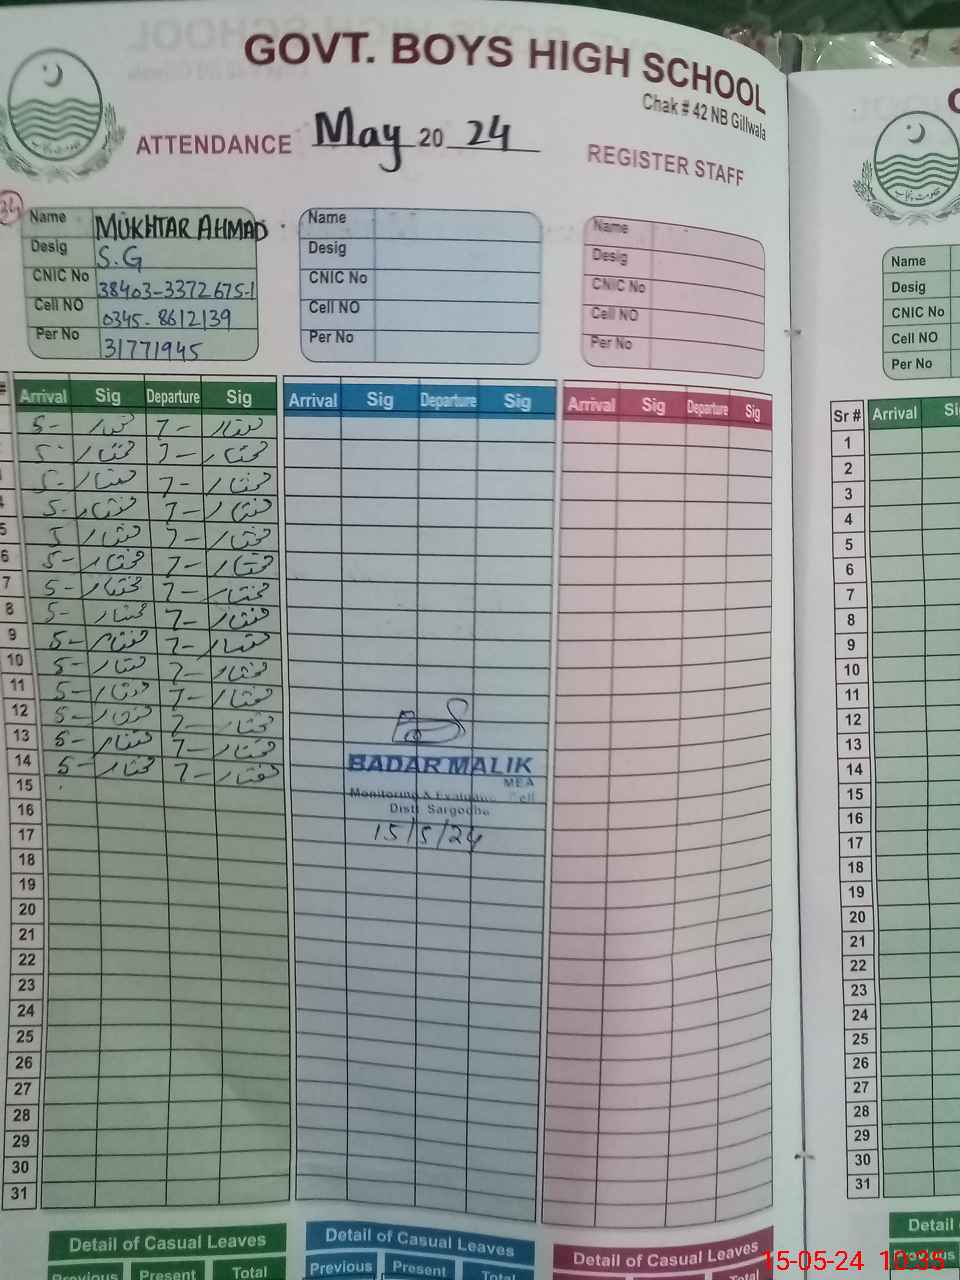 GOVT. BOYS HIGH SCHOOL
Chak # 42 NB Gillwala
ATTENDANCE May 20 24 REGISTER STAFF
Name MUKHTAR AHMAD
Desig S.G
CNIC No 38403-3372675-1
Cell NO 0345-8612139
Per No 31771945
Name
Desig
CNIC No
Cell NO
Per No
Name
Desig
CNIC No
Cell NO
Per No
Arrival Sig Departure Sig Arrival Sig Departure Sig Arrival Sig Departure Sig
5- مختار 7- مختار
5- مختار 7- مختار
5- مختار 7- مختار
5- مختار 7- مختار
5 5 مختار 7- مختار
6 5- مختار 7- مختار
7 5- مختار 7- مختار
8 5- مختار 7- مختار
9 5- مختار 7- مختار
10 5- مختار 7- مختار
11 5- مختار 7- مختار
12 5- مختار 7- مختار
13 5- مختار 7- مختار
14 5- مختار 7- مختار
15
16
17
18
19
20
21
22
23
24
25
26
27
28
29
30
31
BADAR MALIK
MEA
Monitoring & Evaluation Cell
Distt Sargodha
15/5/24
Detail of Casual Leaves
Previous Present Total
Detail of Casual Leaves
Previous Present Total
Detail of Casual Leaves
Total
Name
Desig
CNIC No
Cell NO
Per No
Sr # Arrival
1
2
3
4
5
6
7
8
9
10
11
12
13
14
15
16
17
18
19
20
21
22
23
24
25
26
27
28
29
30
31
Detail
Previous
15-05-24 10:33